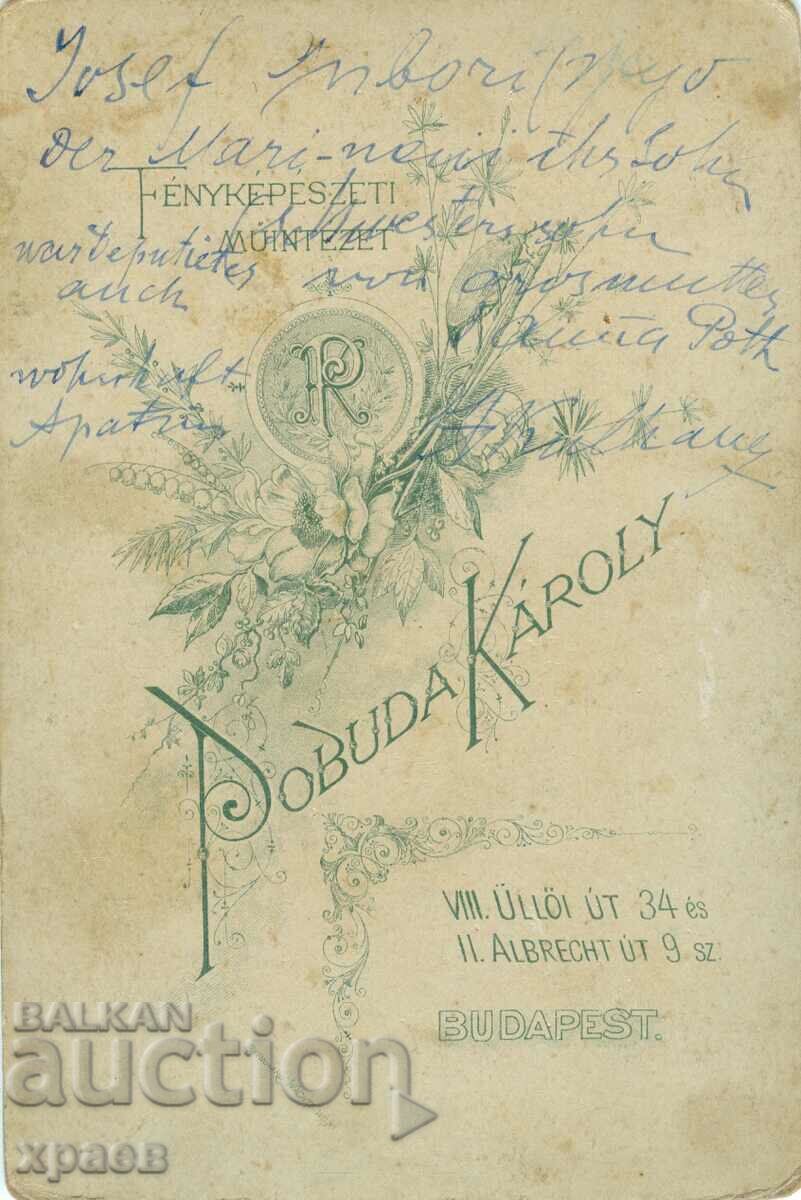 Josef
der Mari-neni ihr Sohn
FÉNYKÉPÉSZETI
Schwesterssohn
MŰINTÉZET
war Deputiertes
auch von Grosmutter
Poth
wohnhaft
Apatin
POBUDA KÁROLY
VIII. ÜLLŐI ÚT 34 és
II. ALBRECHT ÚT 9 sz.
BUDAPEST.
BALKAN
auction
храев